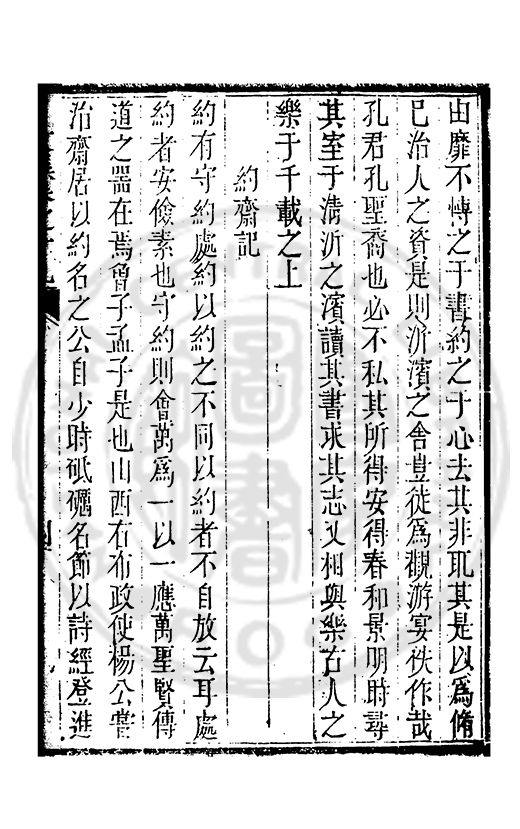 由靡不慱之于書約之于心去其非耴其是以爲脩
已治人之資是則沂濱之舍豈徒爲觀游宴佚作哉
孔君孔聖裔也必不私其所得安得春和景明時尋
其室于淸沂之濱讀其書求其志又相與樂古人之
樂于千載之上
約齋記
約有守約處約以約之不同以約者不自放云耳處
約者安儉素也守約則會萬爲一以一應萬聖賢傳
道之噐在焉曾子孟子是也山西右布政使楊公嘗
治齋居以約名之公自少時砥礪名節以詩經登進